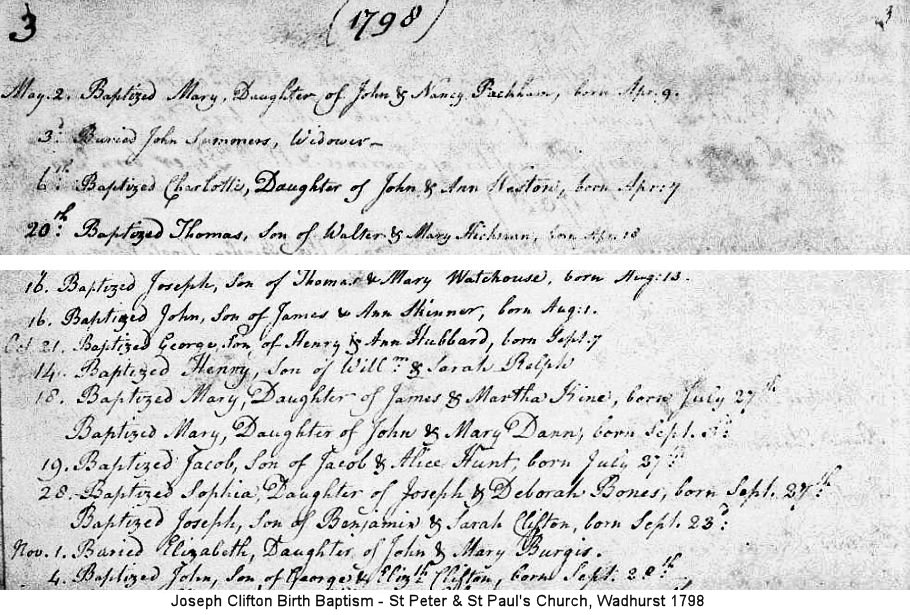 3 (1798) 3
May. 2. Baptized Mary, Daughter of John & Nancy Packham, born Apr. 9.
3d. Buried John Summers, Widower
6th. Baptized Charlotte, Daughter of John & Ann Weston, born Apr: 7
20th. Baptized Thomas, Son of Walter & Mary Hickman, born Apr. 18
16. Baptized Joseph, Son of Thomas & Mary Watchouse, born Aug: 13.
16. Baptized John, Son of James & Ann Skinner, born Aug: 1.
Oct 21. Baptized George, Son of Henry & Ann Hubbard, born Sept. 7
14. Baptized Henry, Son of Willm & Sarah Relph
18. Baptized Mary, Daughter of James & Martha Kine, born July 27th
Baptized Mary, Daughter of John & Mary Dann, born Sept.
19. Baptized Jacob, Son of Jacob & Alice Hunt, born July 27th
28. Baptized Sophia, Daughter of Joseph & Deborah Bones, born Sept. 27th.
Baptized Joseph, Son of Benjamin & Sarah Clifton, born Sept. 23d:
Nov. 1. Buried Elizabeth, Daughter of John & Mary Burgis.
4. Baptized John, Son of George & Elizth Clifton, born Sept.
Joseph Clifton Birth Baptism - St Peter & St Paul's Church, Wadhurst 1798